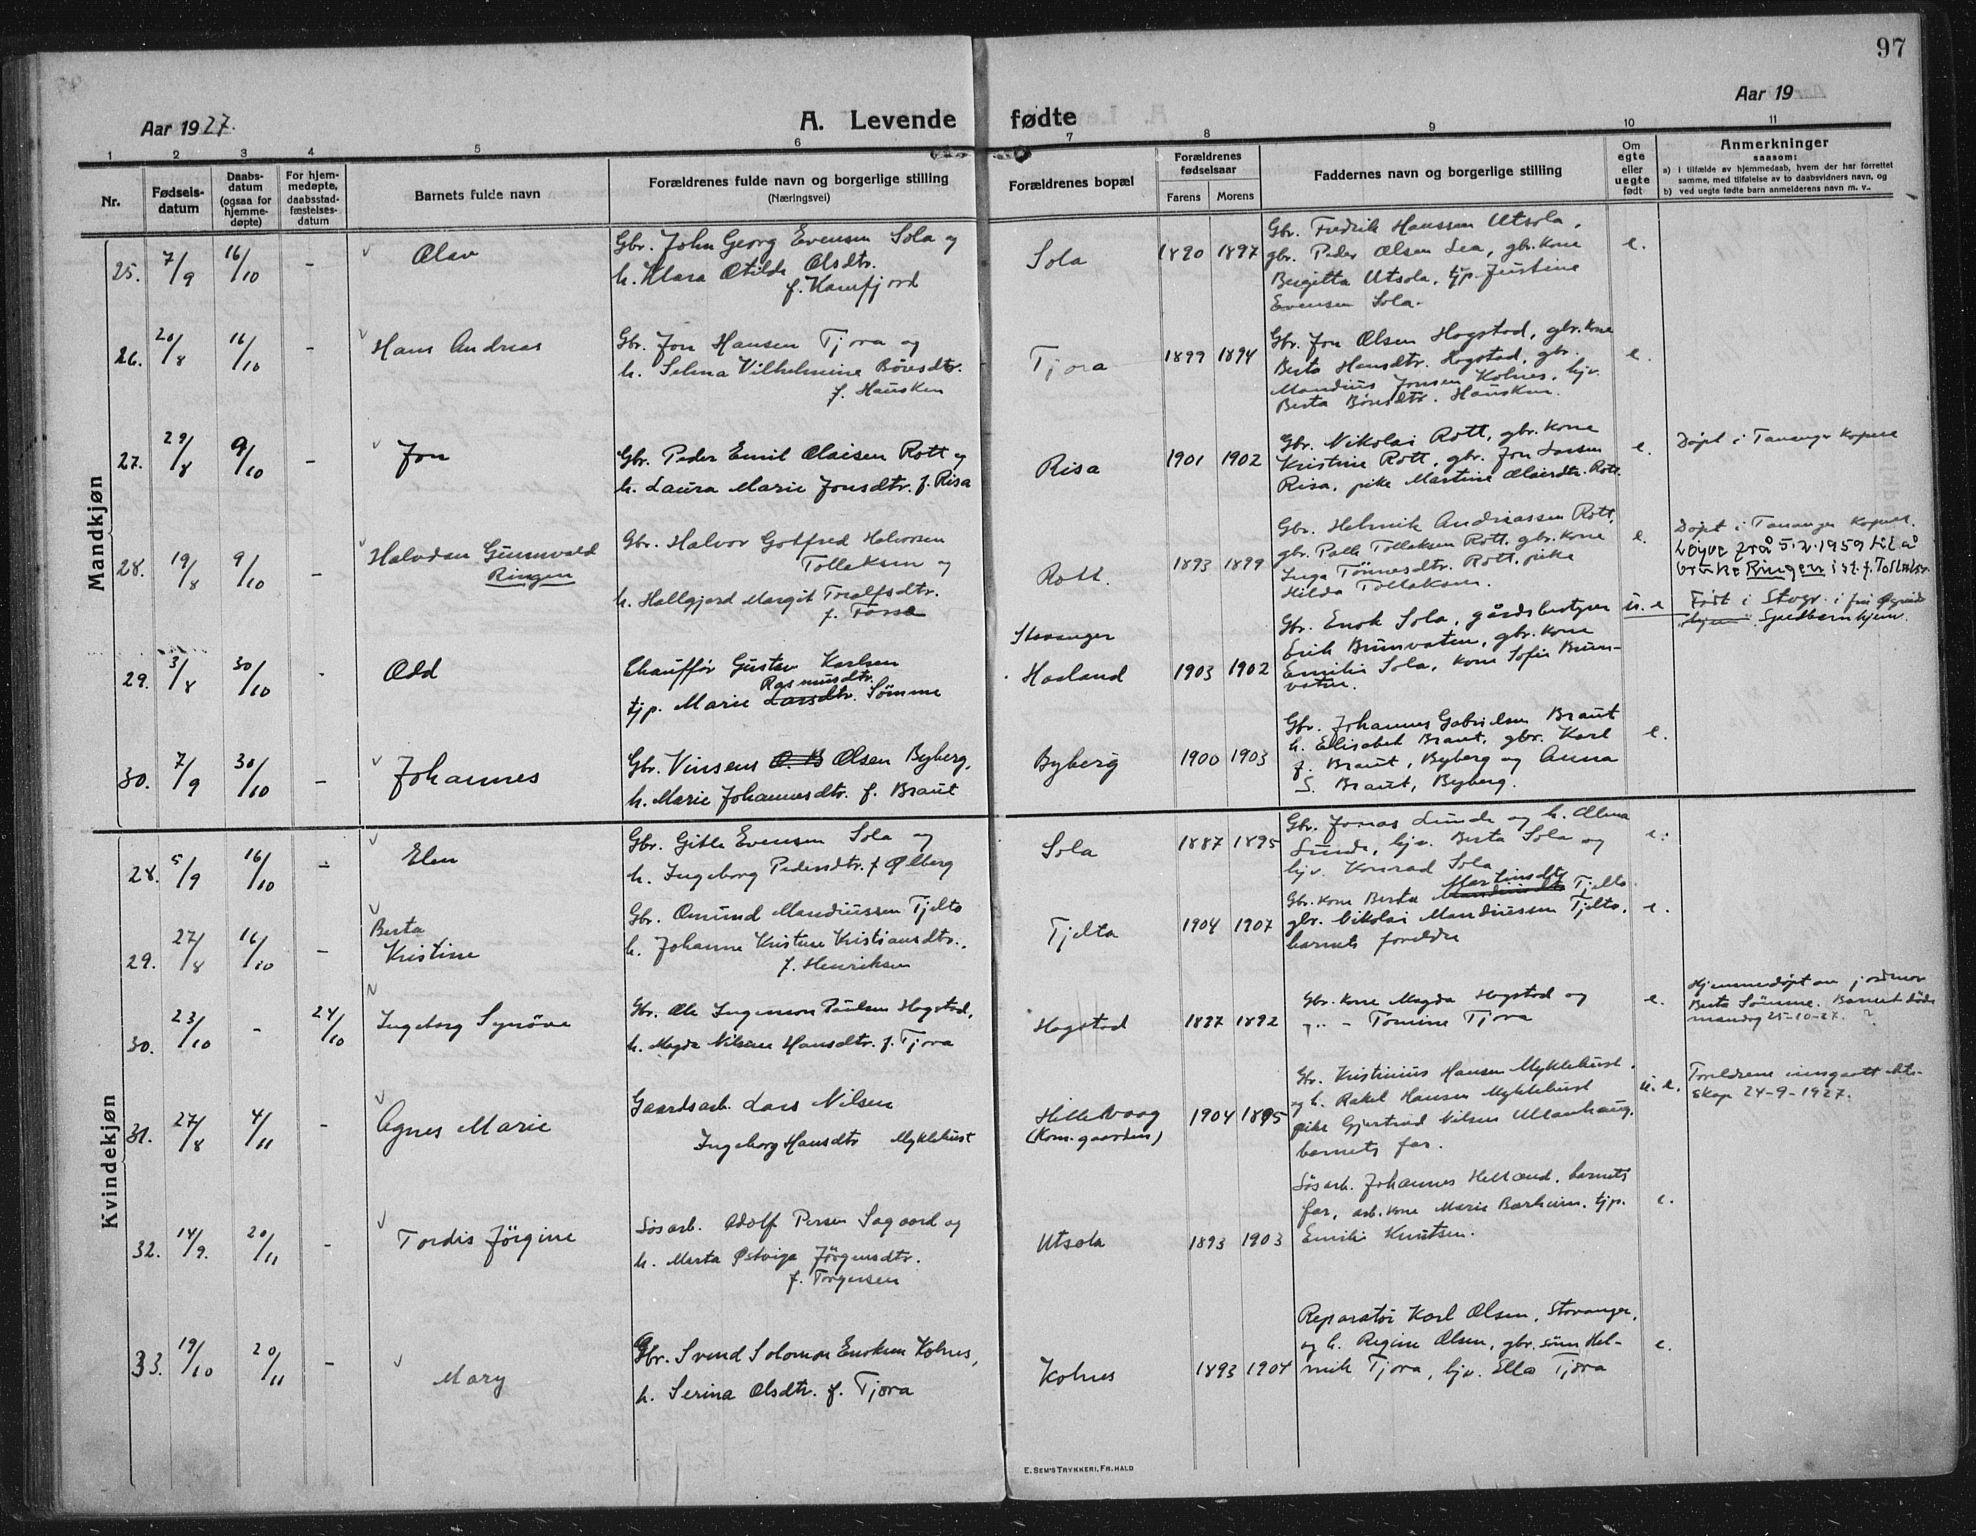 97
Aar 1927.
A. Levende fødte
Aar 19
1 2 3 4 5 6 7 8 9 10 11
Nr.
Fødsels-
datum
Daabs-
datum
(ogsaa for
hjemme-
døpte)
For hjem-
medøpte,
daabsstad-
fæstelses-
datum
Barnets fulde navn
Forældrenes fulde navn og borgerlige stilling
(Næringsvei)
Forældrenes bopæl
Forældrenes
fødselsaar
Farens Morens
Faddernes navn og borgerlige stilling
Om
egte
eller
uegte
født
Anmerkninger
saasom:
a) i tilfælde av hjemmedaab, hvem der har forrettet
samme, med tilføielse av to daabsvidners navn, og
b) ved uegte fødte barn anmelderens navn m. v..
Mandkjøn
25. 7/9 16/10 - Olav
Gbr. John Georg Evensen Sola og
h. Klara Otilde Olsdtr.
f. Kamfjord
Sola 1890 1897
Gbr. Fredrik Hanssen Utsola,
gbr. Peder Olsen Lea, gbr. kone
Birgitta Utsola, tjp. Justine
Evensen Sola.
e.
26. 20/8 16/10 - Hans Andreas
Gbr. Jon Hansen Tjora og
h. Selma Vilhelmine Børesdtr.
f. Hausken
Tjora 1899 1894
Gbr. Jon Olsen Hogstad, gbr. kone
Berta Hansdtr. Hogstad, gbr.
Mandius Jonsen Kolnes, hjv.
Berta Børesdtr. Hausken.
e.
27. 29/8 9/10 - Jon
Gbr. Peder Emil Olaisen Rott og
h. Laura Marie Jonsdtr. f. Risa
Risa 1901 1902
Gbr. Nikolai Rott, gbr. kone
Kristine Rott, gbr. Jon Larsen
Risa, pike Martine Olaisdtr. Rott.
e.
Døpt i Tananger Kapell
28. 19/8 9/10 - Halvdan Gunnvald
Ringen
Gbr. Halvor Gotfred Halvorsen
Tollaksen og
h. Hallgjerd Margit Toralfsdtr.
f. Forså
Rott. 1893 1899
Gbr. Helmik Andreassen Rott,
gbr. Palle Tollaksen Rott, gbr. kone
Inga Tønnesdtr. Rott, pike
Hilda Tollaksen.
e.
Døpt i Tananger Kapell.
Løyve frå 5.2.1959 til å
bruke Ringen i st. f. Tollaksen
29. 3/8 30/10 - Odd
Chauffør Gustav Karlsen
Rasmusdtr.
tjp. Marie Larsdtr. Sømme
Stavanger
Haaland 1903 1902
Gbr. Enok Sola, gårdsbestyrer
Erik Brunvatne, gbr. kone
Emilie Sola, kone Sofie Brun-
vatne.
u. e
Født i Stvgr. i
hjem Spedbarnhjem.
30. 7/9 30/10 - Johannes
Gbr. Vinsens O. B Olsen Byberg,
h. Marie Johannesdtr. f. Braut
Byberg 1900 1903
Gbr. Johannes Gabrielsen Braut
h. Elisabet Braut, gbr. Karl
J. Braut, Byberg og Anna
S. Braut, Byberg.
e.
Kvindekjøn
28. 5/9 16/10 - Elen
Gbr. Gitle Evensen Sola og
h. Ingeborg Pedersdtr. f Ølberg
Sola 1887 1895
Gbr. Jonas Sunde og h. Alma
Sunde, hjv. Berta Sola og
hjv. Konrad Sola
e.
29. 27/8 16/10 - Berta
Kristine
Gbr. Omund Mandiussen Tjelta
h. Johanne Kristine Kristiansdtr.,
f. Henriksen
Tjelta 1904 1907
Martinsdtr
Gbr. kone Berta Mandiusdtr Tjelta.
gbr. Nikolai Mandiussen Tjelta,
barnets foreldre
e.
30. 23/10 - 24/10 Ingeborg Synøve
Gbr. Ole Ingemon Paulsen Hogstad,
h. Magda Nilsine Hansdtr. f. Tjora
Hogstad 1887 1892
Gbr. kone Magda Hogstad og
" - Tomine Tjora
e.
Hjemmedøpt av jordmor
Berta Sømme. Barnet døde
mandag 25-10-27. ?
31. 27/8 4/11 - Agnes Marie
Gaardsarb. Lars Nilsen
Ingeborg Hansdtr Myklebust
Hillevaag
(Kom. gaarden) 1904 1895
Gbr. Kristinius Hansen Myklebust,
og h. Rakel Hansen Myklebust
pike Gjertrud Nilsen Ullanhaug,
barnets far.
u. e.
Foreldrene inngaatt ekte-
skap 24-9-1927.
32. 14/9. 20/11 - Tordis Jörgine
Løsarb. Adolf Persen Sagaard og
h. Marta Østviga Jörgensdtr.
f. Torgersen
Utsola 1893 1903
Løsarb. Johannes Helland, barnets
far, arb. kone Marie Barheim, tjp.
Emilie Knutsen.
e.
33. 19/10 20/11 - Mary
Gbr. Svend Solomon Enoksen Kolnes,
h. Serina Olsdtr. f. Tjora
Kolnes 1893 1904
Reparatør Karl Olsen, Stavanger,
og h. Regine Olsen, gbr. sønn Hel-
mik Tjora, hjv. Ella Tjora
e.
E. SEM'S TRYKKERI, FR.HALD